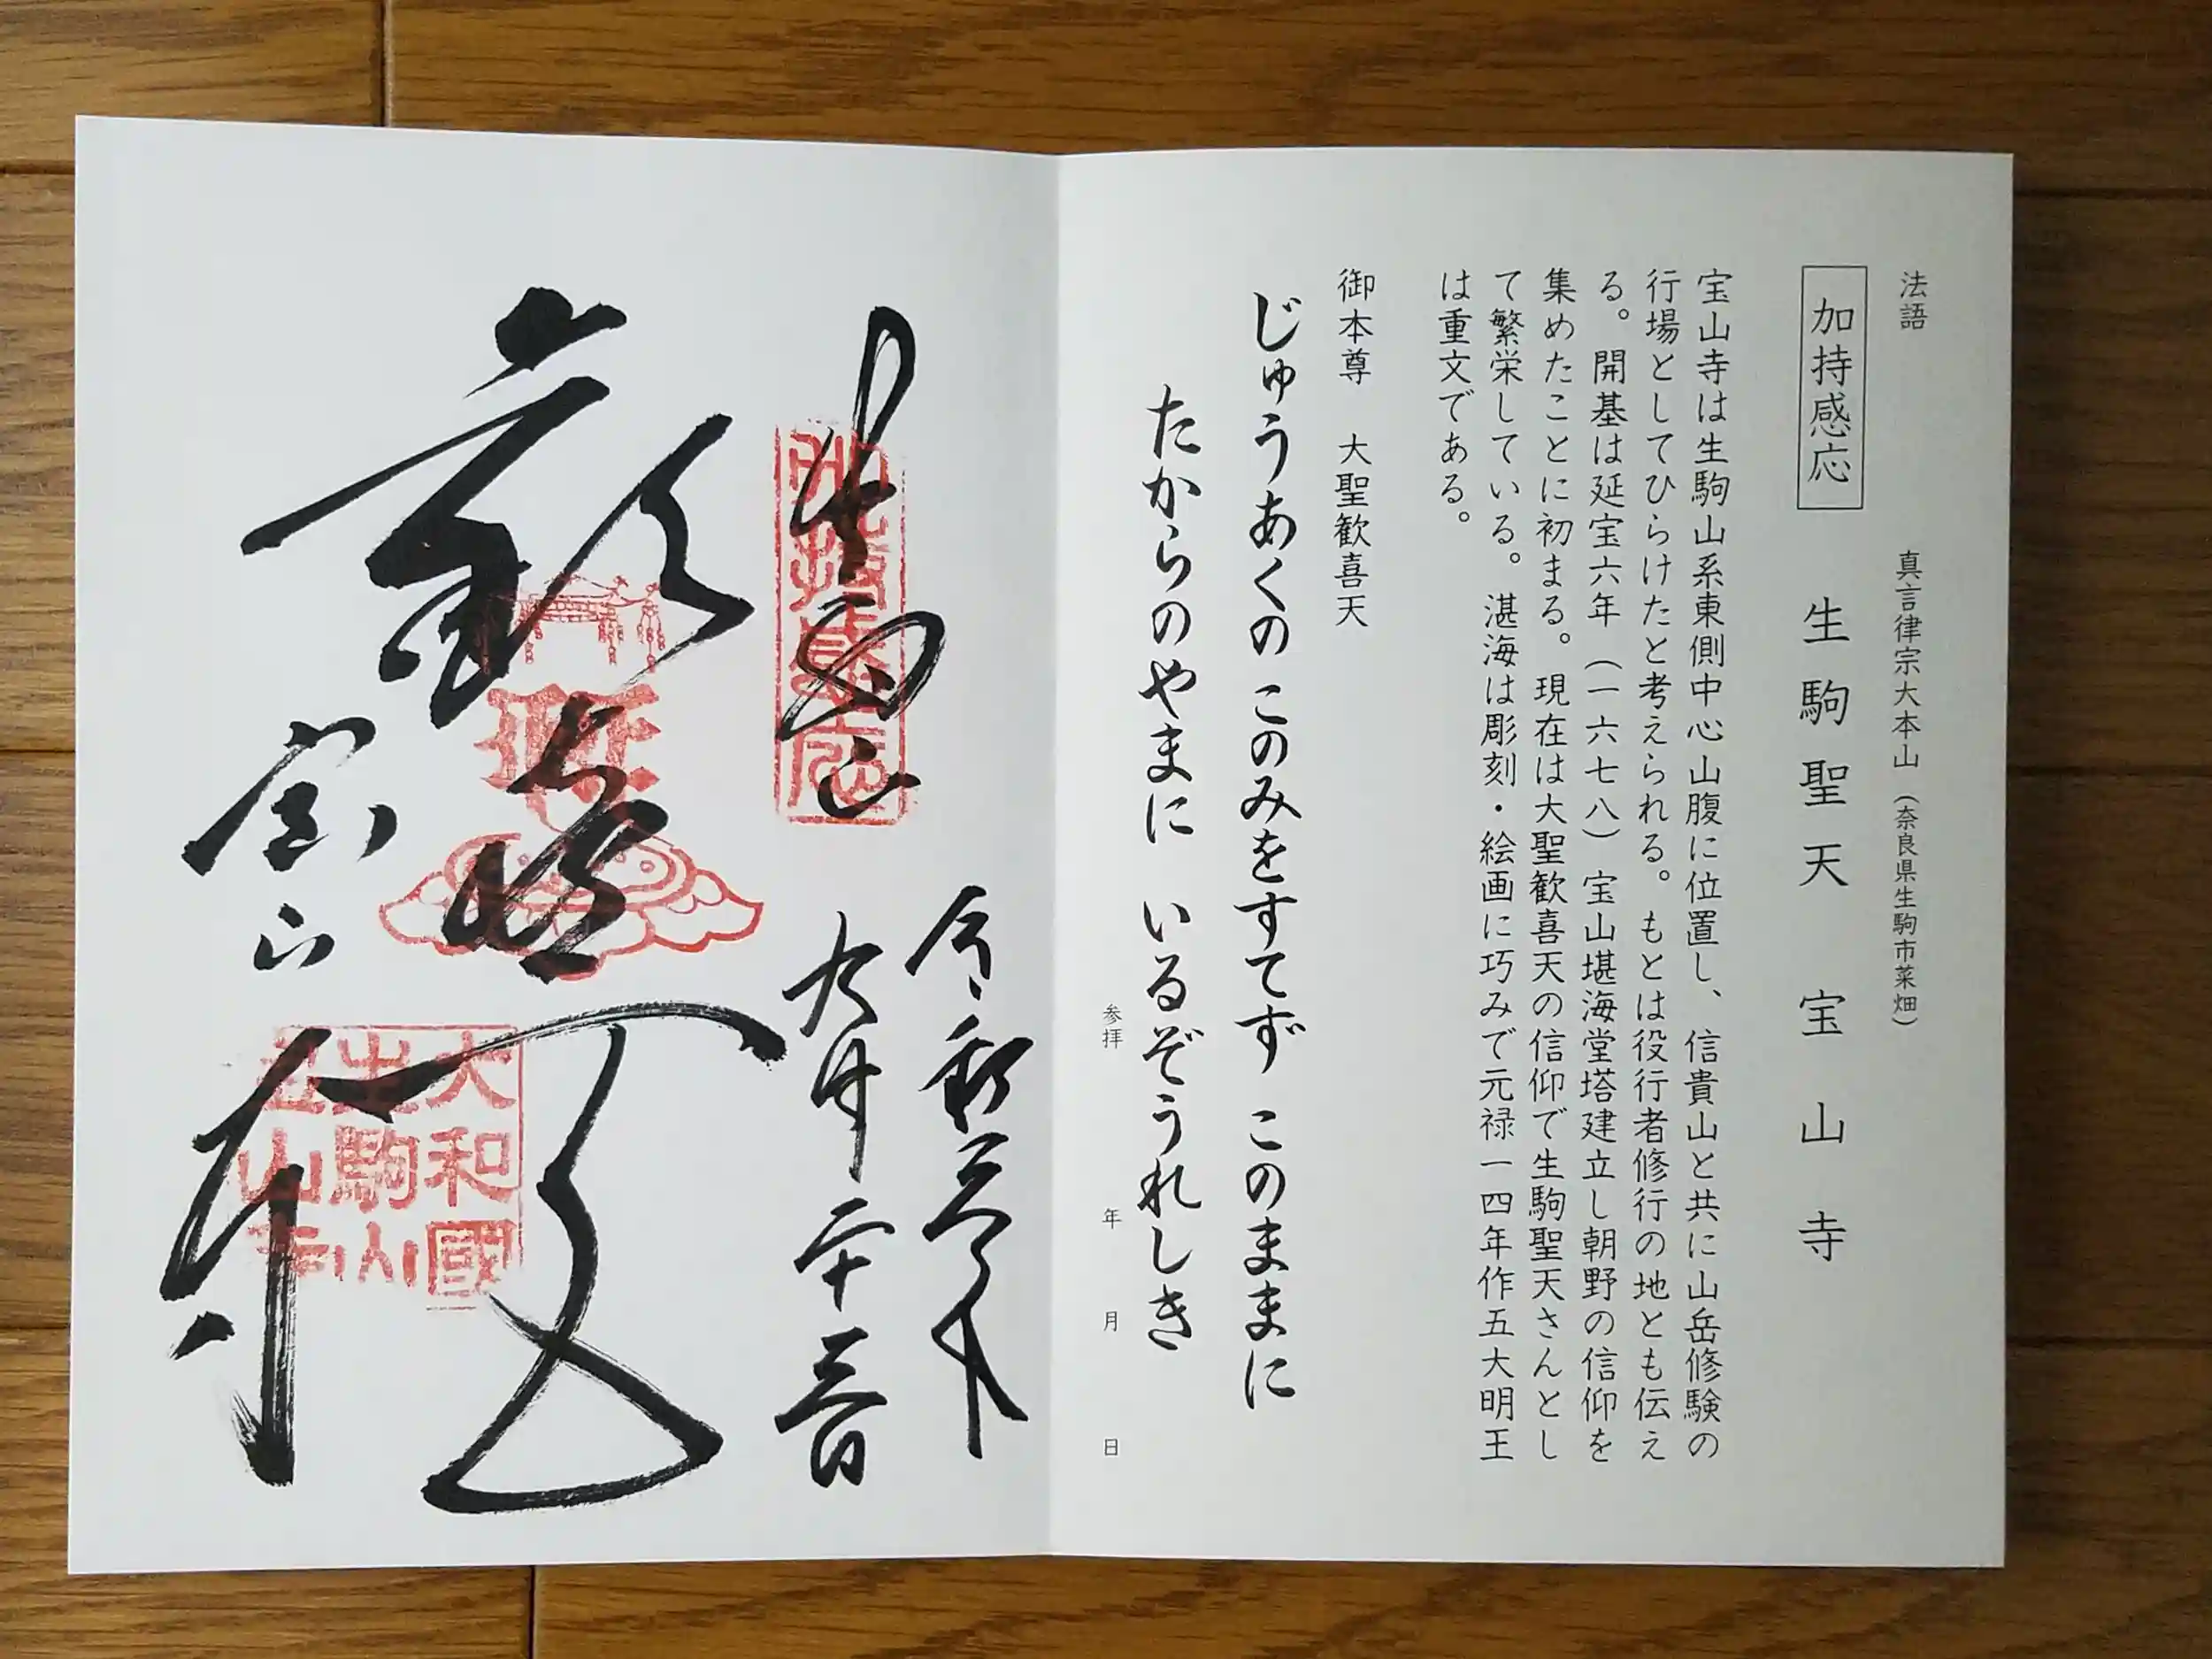 法語
真言律宗大本山（奈良県生駒市菜畑）
加持感応
生駒聖天 宝山寺
宝山寺は生駒山系東側中心山腹に位置し、信貴山と共に山岳修験の
行場としてひらけたと考えられる。もとは役行者修行の地とも伝え
る。開基は延宝六年（一六七八）宝山堪海堂塔建立し朝野の信仰を
集めたことに初まる。現在は大聖歓喜天の信仰で生駒聖天さんとし
て繁栄している。湛海は彫刻・絵画に巧みで元禄一四年作五大明王
は重文である。
御本尊 大聖歓喜天
じゅうあくの このみをすてず このままに
たからのやまに いるぞうれしき
参拝 年 月 日
令和三年
九月二十三日
生駒山
加持感応
歓喜天
宝山寺
大和國
生駒山
宝山寺